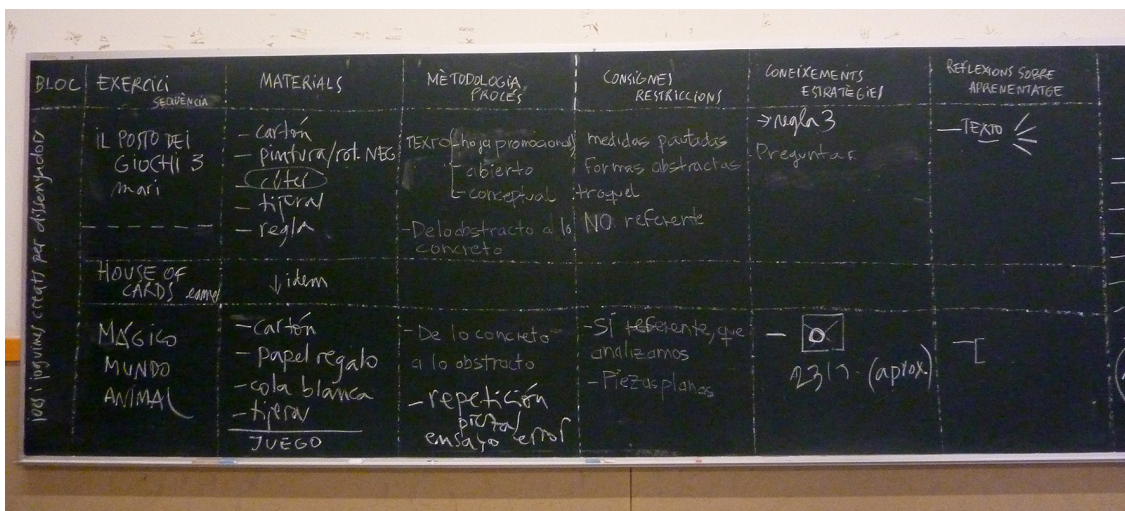 BLOC
EXERCICI
SEQÜÈNCIA
MATERIALS
MÈTODOLOGIA
PROCÉS
CONSIGNES
RESTRICCIONS
CONEIXEMENTS
ESTRATÈGIES
REFLEXIONS SOBRE
APRENENTATGE
jocs i joguines creats per dissenyadors
IL POSTO DEI
GIOCHI 3
mari
- cartón
- pintura/rot. NEG
- cúter
- tijeras
- regla
TEXTO
hoja promocional
abierto
conceptual
- De lo abstracto a lo
concreto
medidas pautadas
Formas abstractas
troquel
NO referente
→ regla 3
Preguntas
- TEXTO
HOUSE OF
CARDS eames
↓ idem
MÁGICO
MUNDO
ANIMAL
- cartón
- papel regalo
- cola blanca
- tijeras
JUEGO
- De lo concreto
a lo abstracto
- repetición
ensayo error
- SÍ referente, que
analizamos
- Piezas planas
(aprox.)